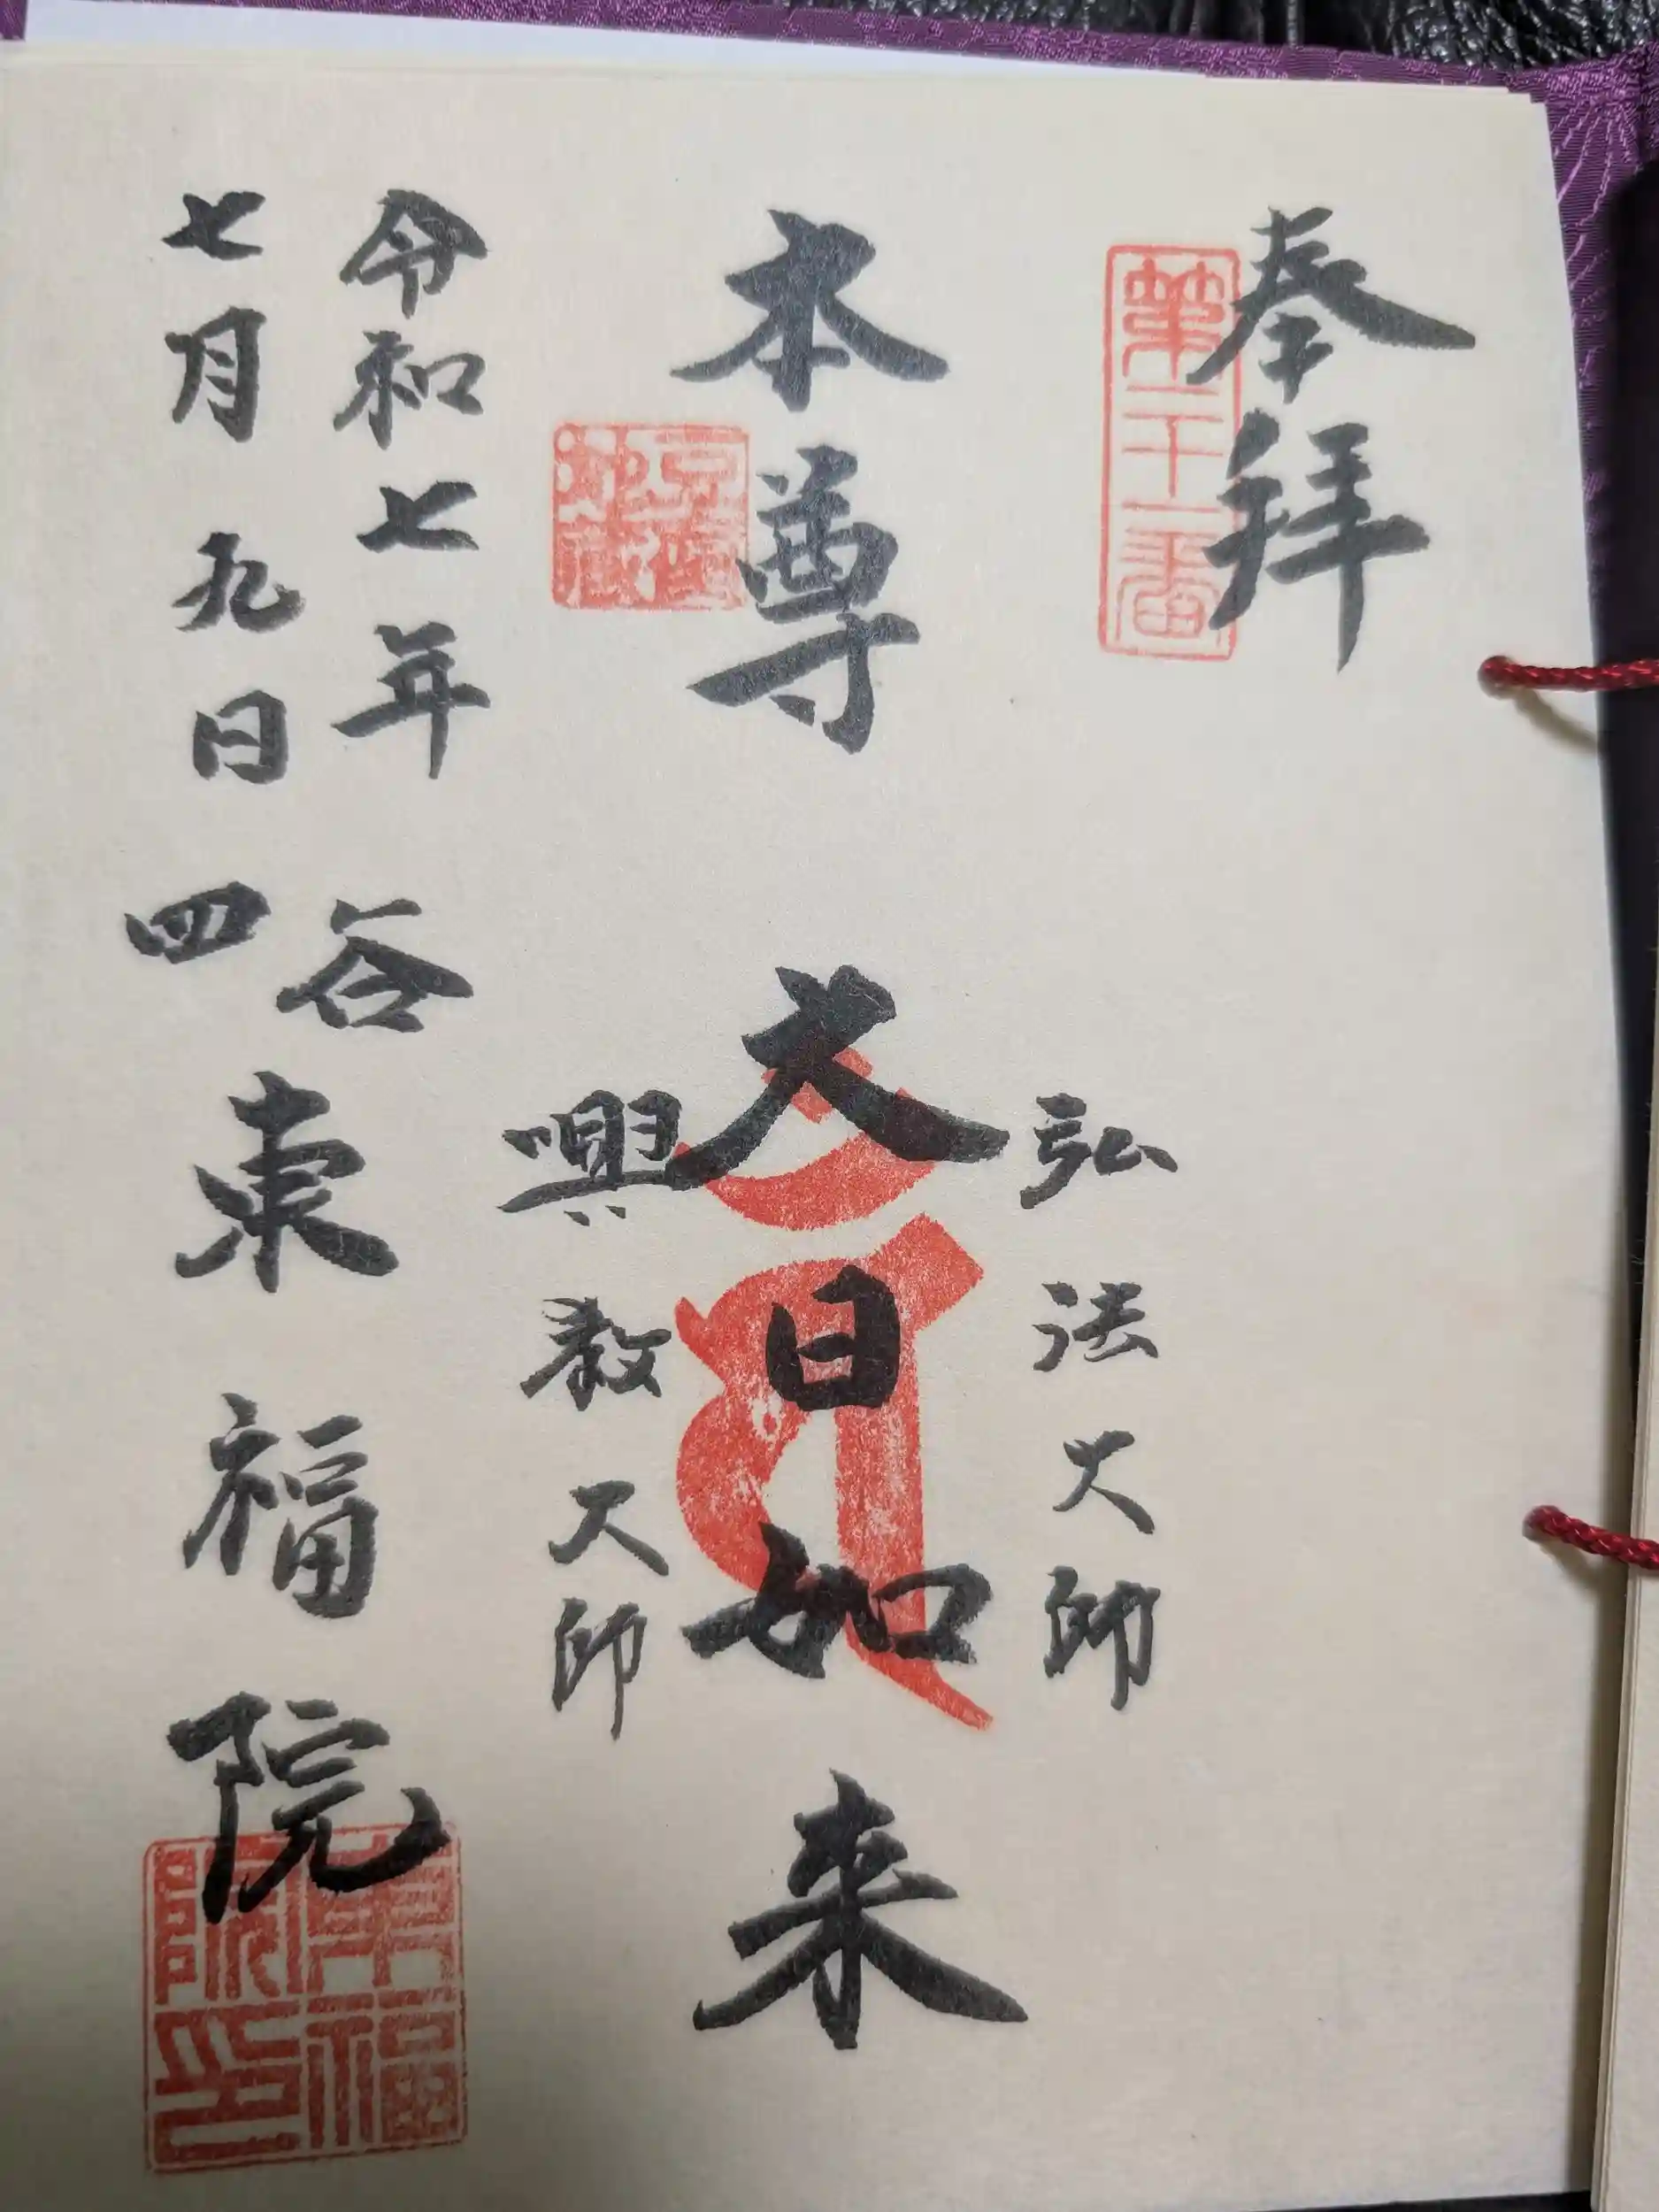 奉拝
第二十一番
本尊 大日如来
豆腐地蔵
弘法大師
興教大師
令和七年
七月九日
四谷
東福院
東福院印